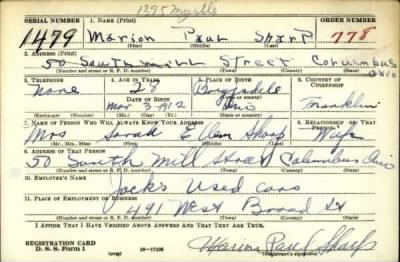 1395 Myrtle
SERIAL NUMBER 1. NAME (Print) ORDER NUMBER
1479 Marion Paul Sharp 778
(First) (Middle) (Last)
2. ADDRESS (Print)
50 South Mill Street Columbus Ohio
(Number and street or R. F. D. number) (Town) (County) (State)
3. TELEPHONE 4. AGE IN YEARS 5. PLACE OF BIRTH 6. COUNTRY OF CITIZENSHIP
None 28
DATE OF BIRTH (Town or county)
Mar 3 1912 Ohio Franklin
(Exchange) (Number) (Mo.) (Day) (Yr.) (State or country)
7. NAME OF PERSON WHO WILL ALWAYS KNOW YOUR ADDRESS 8. RELATIONSHIP OF THAT PERSON
Mrs Sarah Ellen Sharp Wife
(Mr., Mrs., Miss) (First) (Middle) (Last)
9. ADDRESS OF THAT PERSON
50 South Mill Street Columbus Ohio
(Number and street or R. F. D. number) (Town) (County) (State)
10. EMPLOYER'S NAME
Jacks Used Cars
11. PLACE OF EMPLOYMENT OR BUSINESS
491 West Broad St
(Number and street or R. F. D. number) (Town) (County) (State)
I AFFIRM THAT I HAVE VERIFIED ABOVE ANSWERS AND THAT THEY ARE TRUE.
REGISTRATION CARD
D. S. S. Form 1 (over) 16-17105 Marion Paul Sharp
(Registrant's signature)